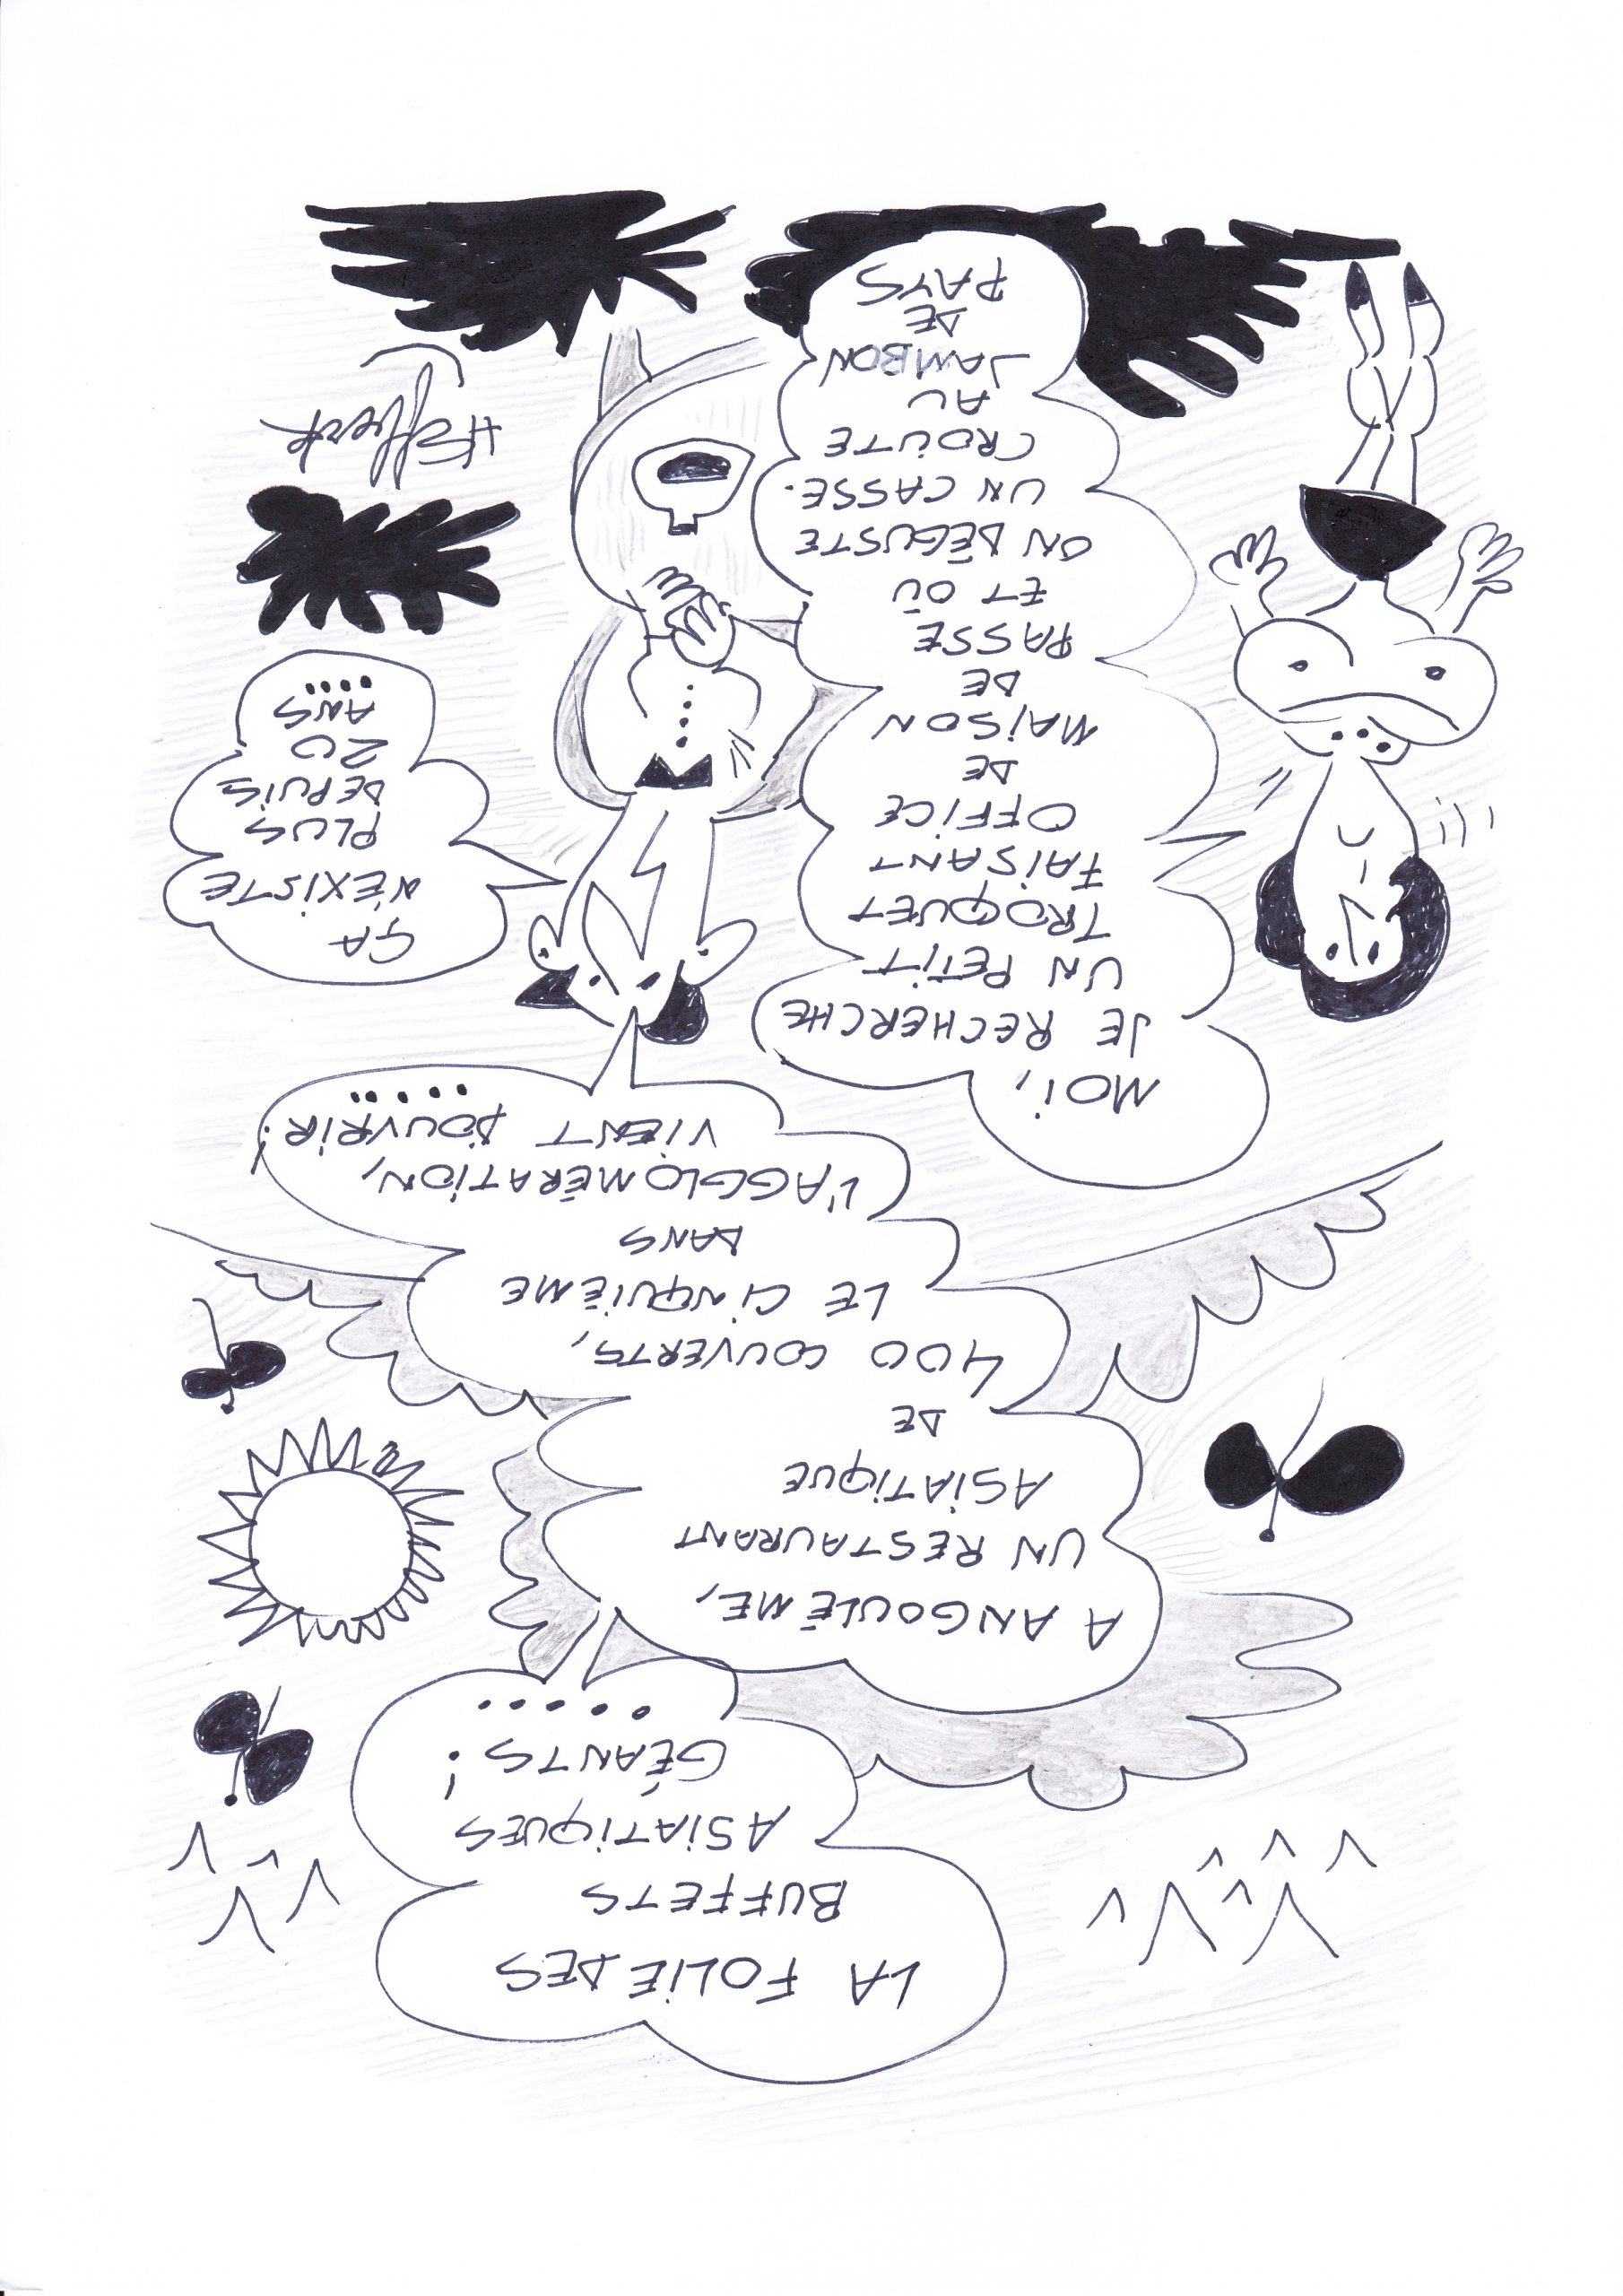 LA FOLIE DES
BUFFETS
ASIATIQUES
GÉANTS !
.....
A ANGOULÊME,
UN RESTAURANT
ASIATIQUE
DE
400 COUVERTS,
LE CINQUIÈME
DANS
L'AGGLOMÉRATION,
VIENT D'OUVRIR !
.....
MOI,
JE RECHERCHE
UN PETIT
TROQUET
FAISANT
OFFICE
DE
MAISON
DE
PASSE
ET OÙ
ON DÉGUSTE
UN CASSE-
CROÛTE
AU
JAMBON
DE
PAYS
ÇA
N'EXISTE
PLUS
DEPUIS
20
ANS
....